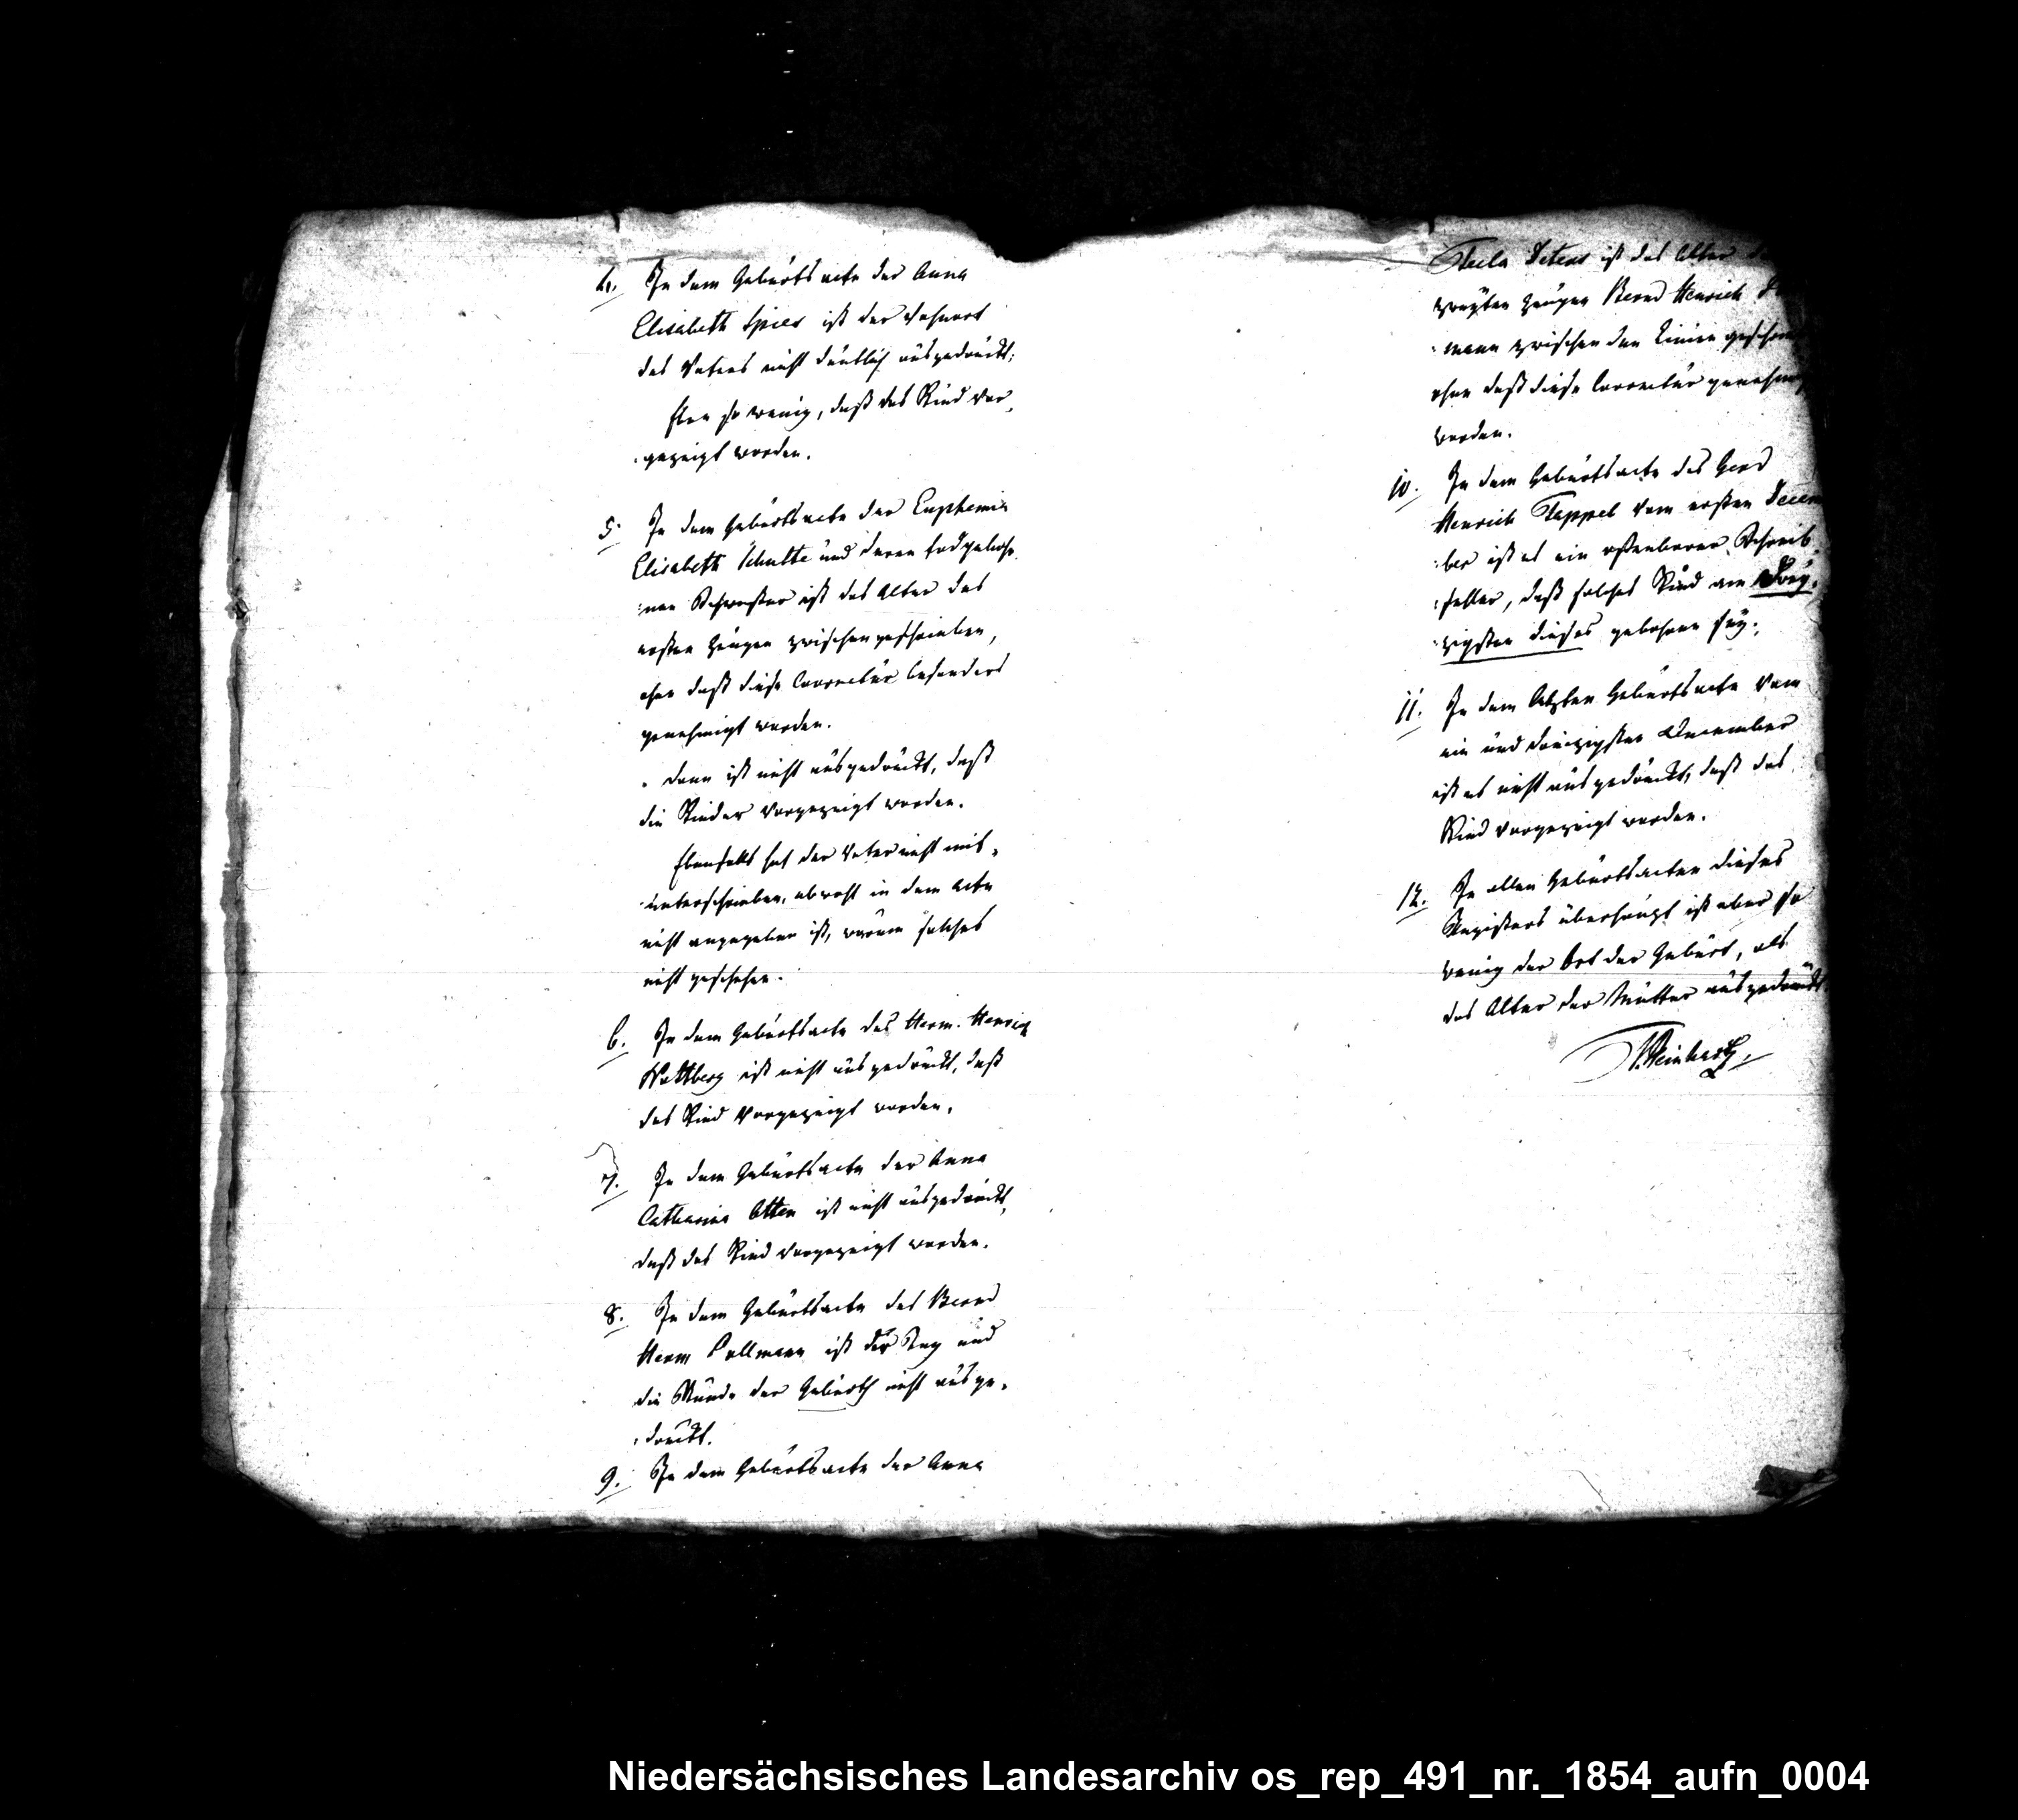 4. In dem Geburts acte der Anna
Elisabeth Spier ist der Wohnort
des Vaters nicht deutlich ausgedruckt;
Eben so wenig, daß das Kind vor-
gezeigt worden.
5. In dem Geburts acte der Euphemia
Elisabeth Schulte und deren todgebohr-
nen Schwester ist das Alter des
ersten Zeugen zwischengeschrieben,
ohne daß diese Correctur besonders
genehmigt worden.
Dann ist nicht ausgedruckt, daß
die Kinder vorgezeigt worden.
Ebenfalls hat der Vater nicht mit-
unterschrieben, obwohl in dem Acte
nicht angegeben ist, warum solches
nicht geschehen.
6. In dem Geburtsacte des Herm. Henrich
Wattberg ist nicht ausgedruckt, daß
das Kind vorgezeigt worden.
7. In dem Geburtsacte der Anna
Catharina Otten ist nicht ausgedruckt,
daß das Kind vorgezeigt worden.
8. In dem Geburtsacte des Bernd
Herm Pollmann ist der Tag und
die Stunde der Geburth nicht ausge-
druckt.
9. In dem Geburtsacte der Anna
Peters ist das Alter
zweyten Zeugen Bernd Henrich
mann zwischen den Linien
ohne daß diese Correctur
worden.
10. In dem Geburtsacte des Gerd
Henrich Tappel vom ersten Decem
ber ist es ein offenbarer Schreib
fehler, daß solches Kind am Drey-
zigsten dieses gebohren sey.
11. In dem letzten Geburtsacte vom
ein und dreizigsten December
ist es nicht ausgedruckt, daß das
Kind vorgezeigt worden.
12. In allen Geburtsacten dieses
Registers überhaupt ist aber so
wenig der Ort der Geburt, als
das Alter der Mutter ausgedruckt
Niedersächsisches Landesarchiv os_rep_491_nr._1854_aufn_0004